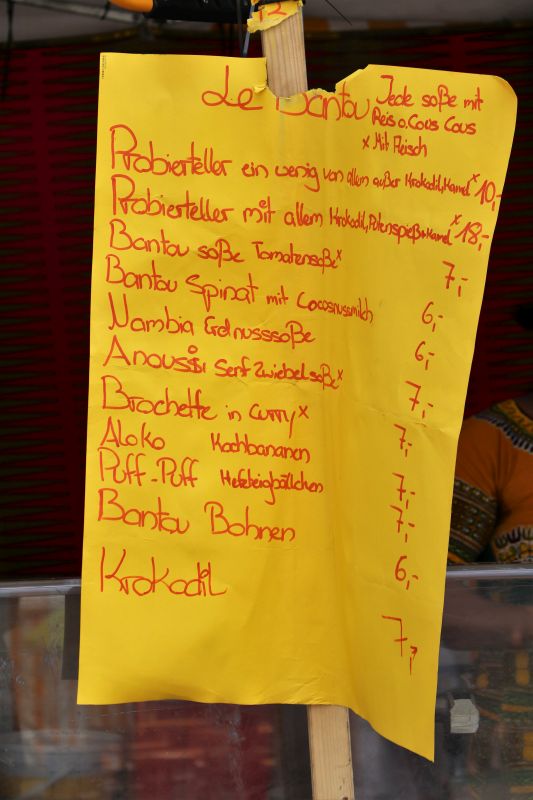 12
Le Bantou
Jede soße mit
Reis o. Cous Cous
x Mit Fleisch
Probierteller ein wenig von allem außer Krokodil, Kamel x 10,-
Probierteller mit allem Krokodil, Putenspieß+Kamel x 18,-
Bantou soße Tomatensoße x 7,-
Bantou Spinat mit Cocosnussmilch 6,-
Nambia Erdnusssoße 6,-
Anoussi Senf Zwiebelsoße x 7,-
Brochette in Curry x 7,-
Aloko Kochbananen 7,-
Puff-Puff Hefeteigbällchen 7,-
Bantou Bohnen 6,-
Krokodil 7,-